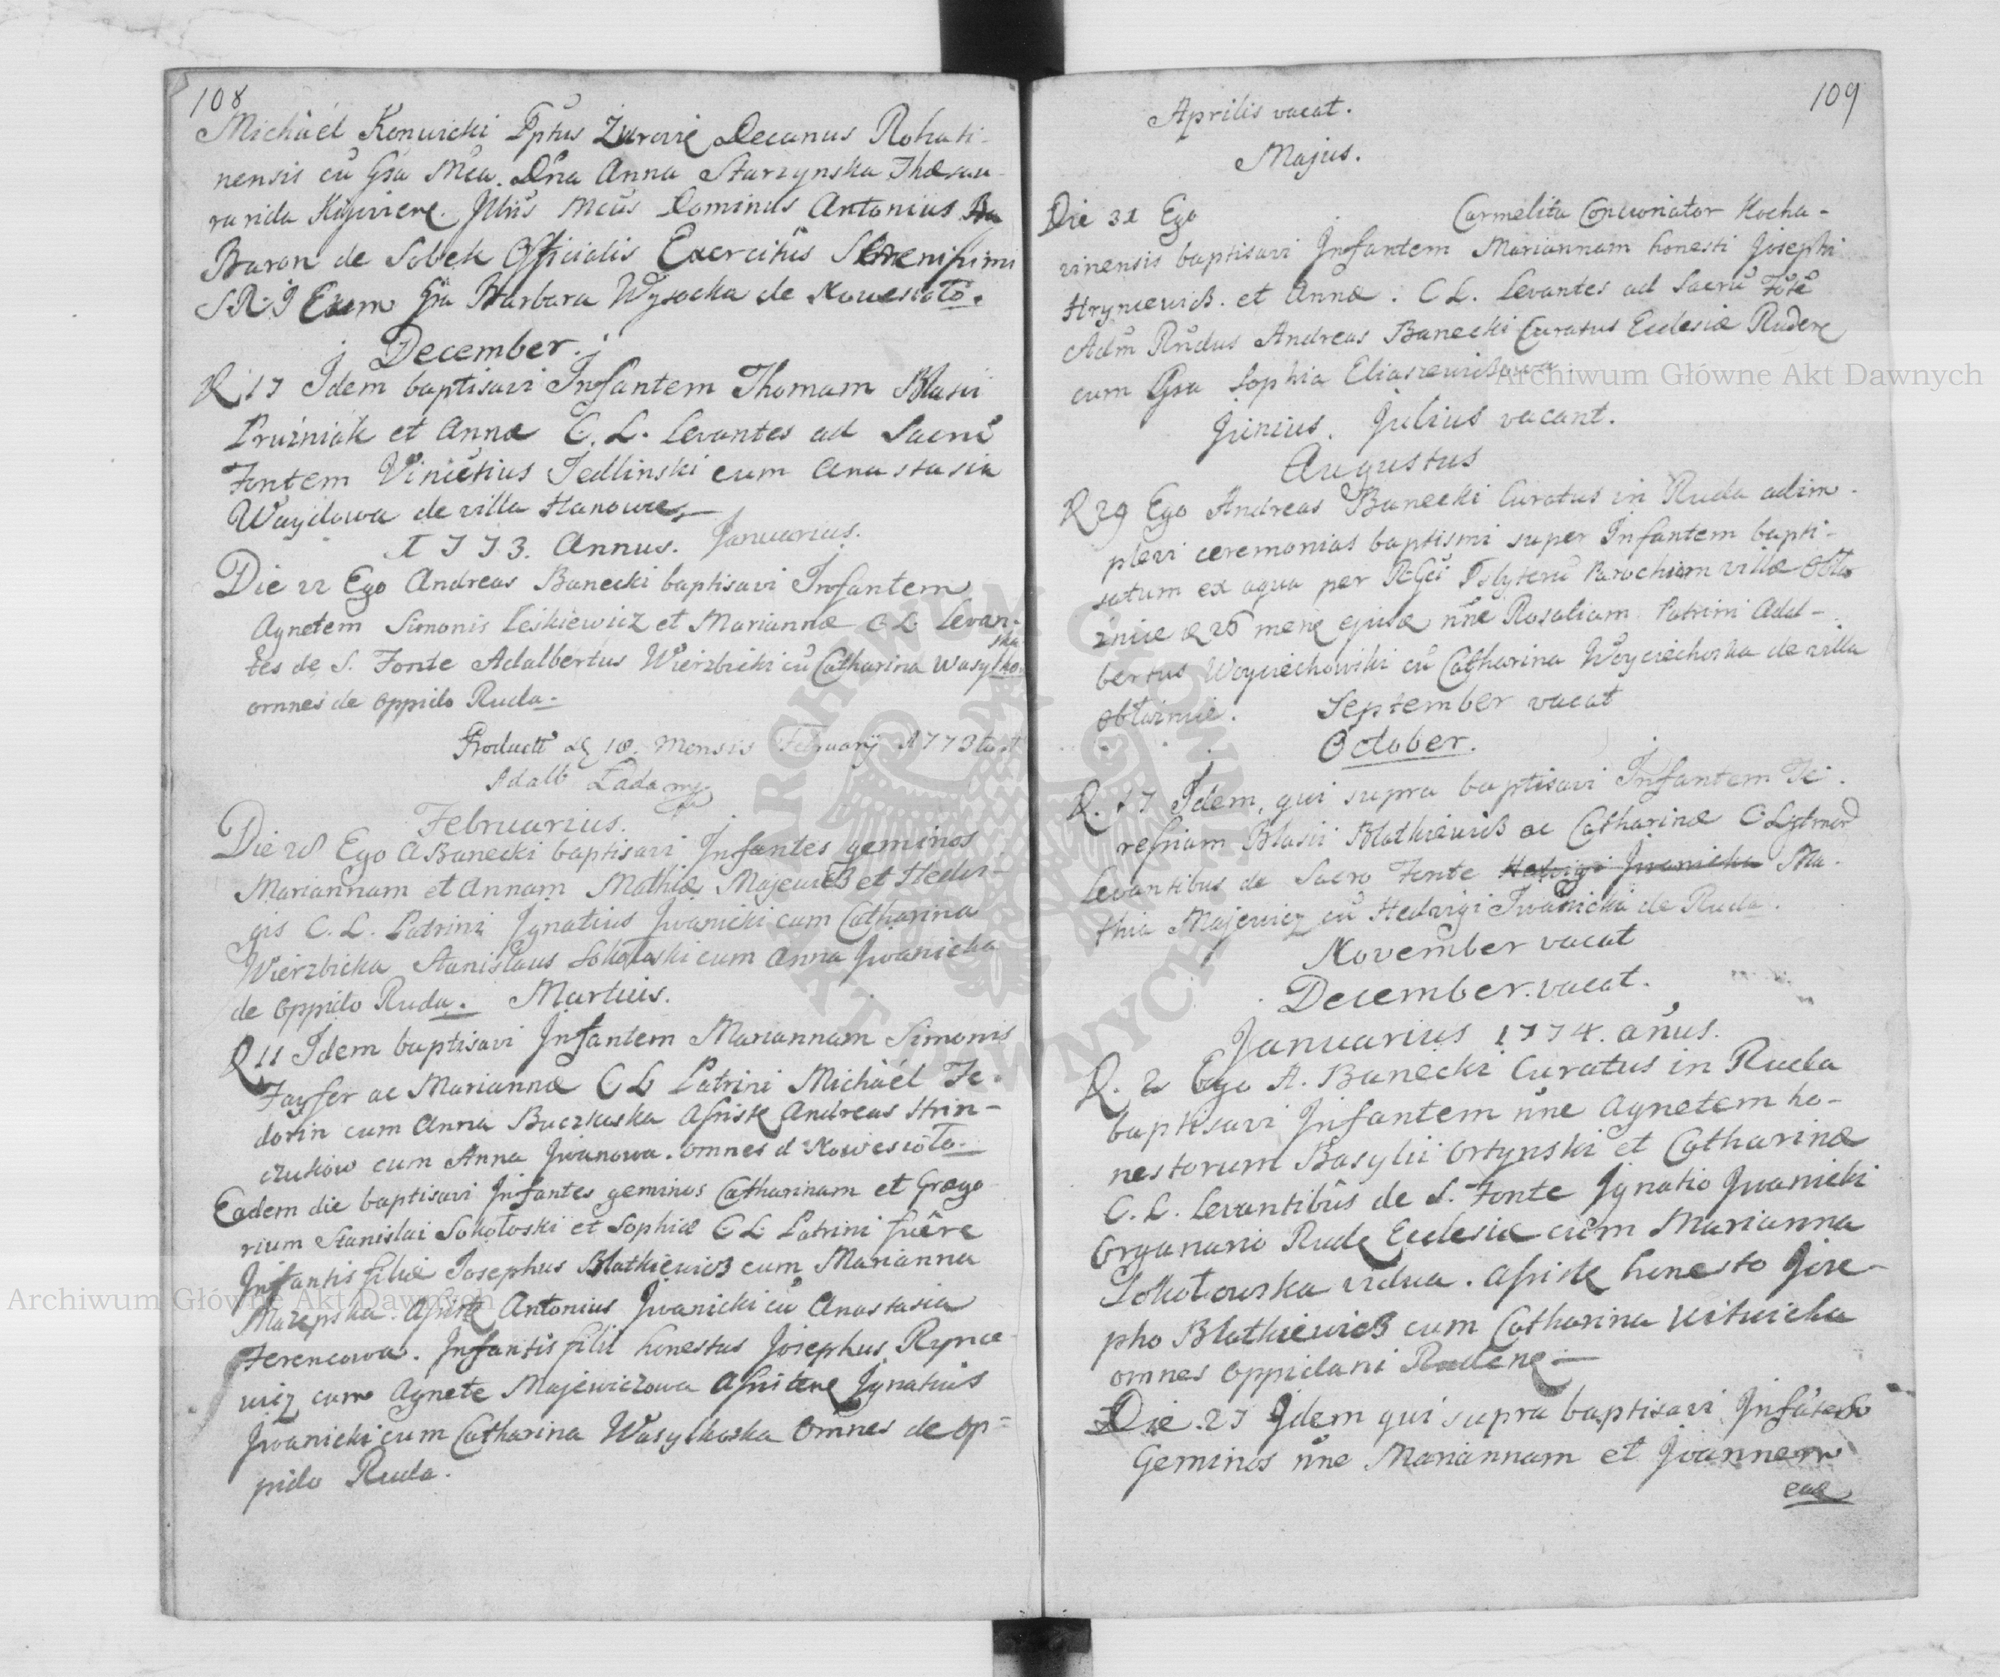 108
Michaël Konwicki Pptus Zurovię Decanus Rohati-
nensis cũ Gsa Mca. Dña Anna Starzynska Thæsau-
rarida Kijoviene. Illris Mcus Dominus Antonius
Baron de Sobek Officialis Exercitûs Serenissimi
S.R.I Exem Gsa Barbara Wysocka de Nowesioło.
December.
D 17 Idem baptisavi Infantem Thomam Blasii
Pruzniak et Annæ C. L. Levantes ad Sacrũ
Fontem Vincẽtius Jedlinski cum Anastasia
Waydowa de villa Hanowce
1773. Annus. Januarius.
Die 22 Ego Andreas Banecki baptisavi Infantem
Agnetem Simonis Leskiewicz et Mariannæ C L Levan-
tes de S. Fonte Adalbertus Wierzbicki cũ Catharina Wasylko-
ska
omnes de oppido Ruda.
Product 18. Mensis Februarij 1773
Adalb Ladamp
Februarius.
Die 28 Ego A Banecki baptisavi Infantes geminos
Mariannam et Annam Mathiæ Majewicz et Hedvi-
gis C. L. Patrini Ignatius Jwanicki cum Catharina
Wierzbicka Stanislaus Sokołoski cum Anna Jwanicka
de oppido Ruda. Martius.
D 11 Idem baptisavi Infantem Mariannam Simonis
Fayfer ac Mariannæ C L Patrini Michaël Fe-
dorin cum Anna Buczkoska Assistẽ Andreas Hrin-
czukow cum Anna Jwanowa. omnes d Nowesioło.
Eadem die baptisavi Infantes geminos Catharinam et Grego
rium Stanislai Sokołoski et Sophiæ C L Patrini fuêre
Infantis filiæ Josephus Blatkiewicz cum Marianna
Mazepska. Assistẽ Antonius Jwanicki cũ Anastasia
Ferencowa. Infantis filii honestus Josephus Rynce-
wicz cum Agnete Majewiczowa Assitenę Ignatius
Jwanicki cum Catharina Wasylkoska omnes de op=
pido Ruda.
109
Aprilis vacat.
Majus.
Die 31 Ego Carmelita Concionator Kocha-
vinensis baptisavi Infantem Mariannam honesti Josephi
Hryncewicz. et Annæ. C L. Levantes ad Sacrũ Fotẽ
Adm Rñdus Andreas Banecki Curatus Ecclesiæ Rudenę
cum Gsa Sophia Eliaszewiczowa
Junius. Julius vacant.
Augustus
D 29 Ego Andreas Banecki Curatus in Ruda adim-
plevi ceremonias baptismi super Infantem bapti-
satum ex aqua per Psbyterũ Parochum villæ Obła
znice 26 ejusd nñe Rosaliam. Patrini Adal-
bertus Woyciechowski cũ Catharina Woyciechoska de villa
obłaznice. September vacat
October.
D. 17 Idem, qui supra baptisavi Infantem Te-
resiam Blasii Blatkiewicz ac Catharinæ
Levantibus de Sacro Fonte Hedvigi Jwanicka Ma-
thia Majewicz cũ Hedvigi Jwanicka de Ruda.
November vacat
December. vacat.
Januarius 1774. añus.
D. 2 Ego A. Banecki Curatus in Ruda
baptisavi Infantem nñe Agnetem ho-
nestorum Basylii Ortynski et Catharinæ
C. L. Levantibus de S. Fonte Ignatio Jwanicki
Organario Rudę Ecclesiæ cum Marianna
Sokołowska vidua. Assistẽ honesto Jose-
pho Blatkiewicz cum Catharina Witwicka
omnes oppidani Rudenę
Die. 27 Idem qui supra baptisavi Infãtes
Geminos nñe Mariannam et Joannem